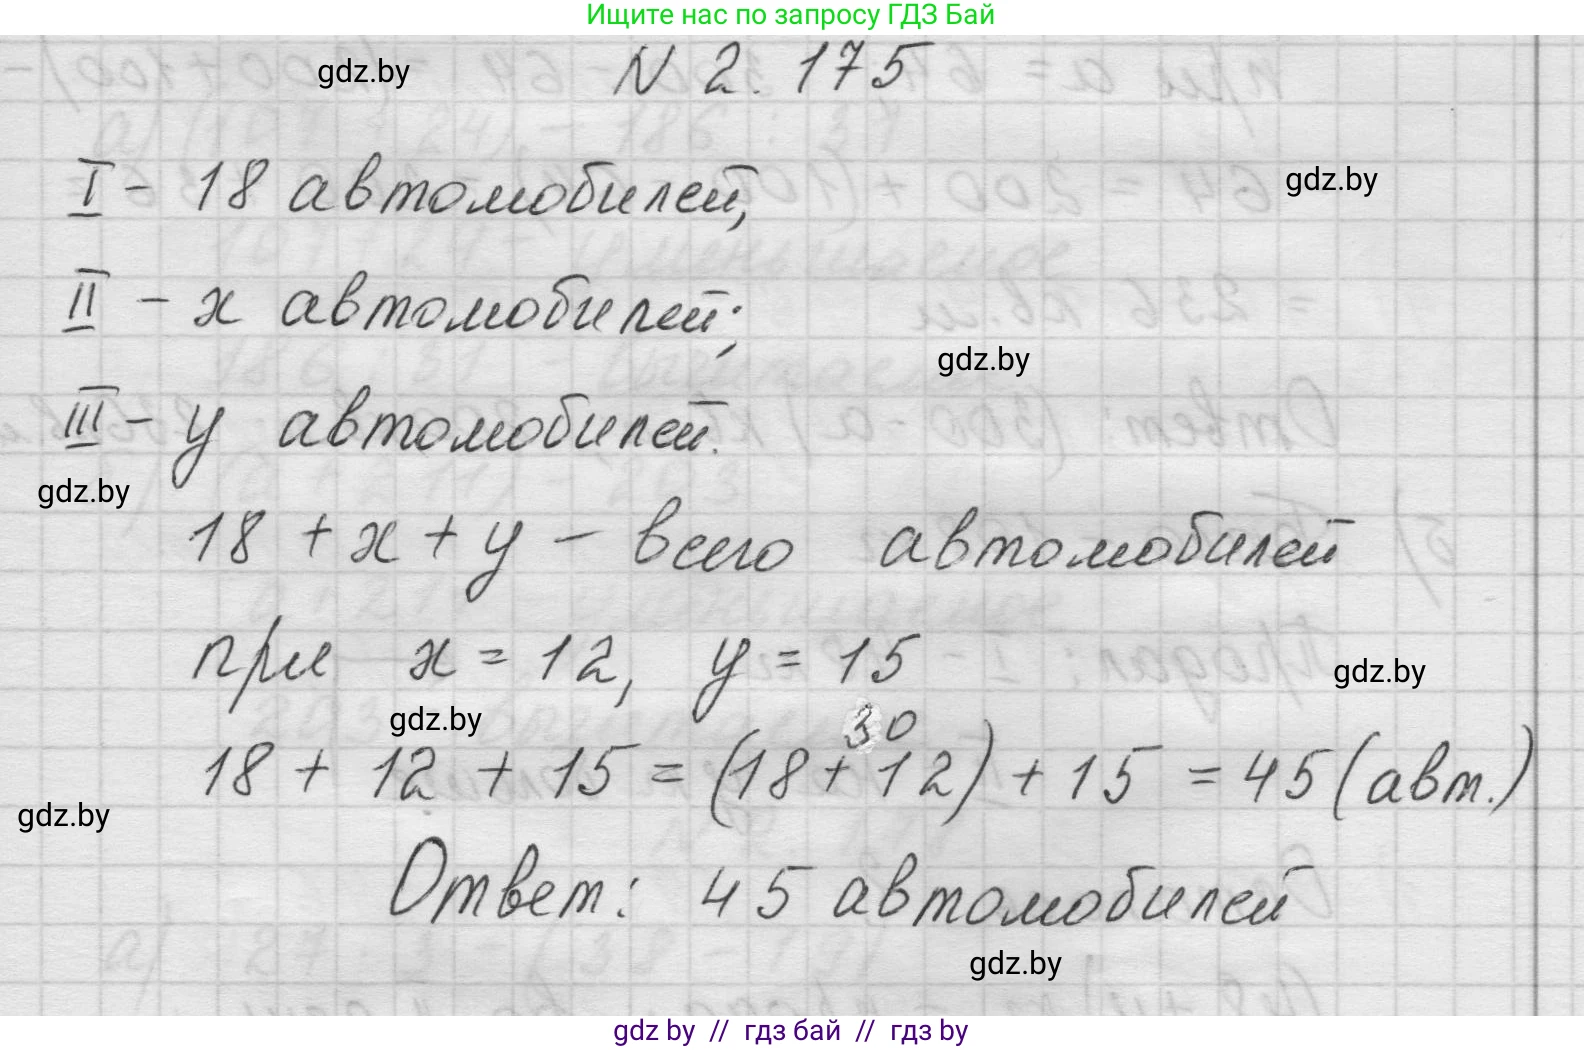 Ищите нас по запросу ГДЗ Бай
gdz.by
N 2. 175
I - 18 автомобилей,
gdz.by
II - x автомобилей;
gdz.by
III - y автомобилей.
gdz.by
18 + x + y - всего автомобилей
при x = 12, y = 15
gdz.by
gdz.by
30
18 + 12 + 15 = (18 + 12) + 15 = 45 (авт.)
gdz.by
Ответ: 45 автомобилей
gdz.by
gdz by // гдз бай // гдз by